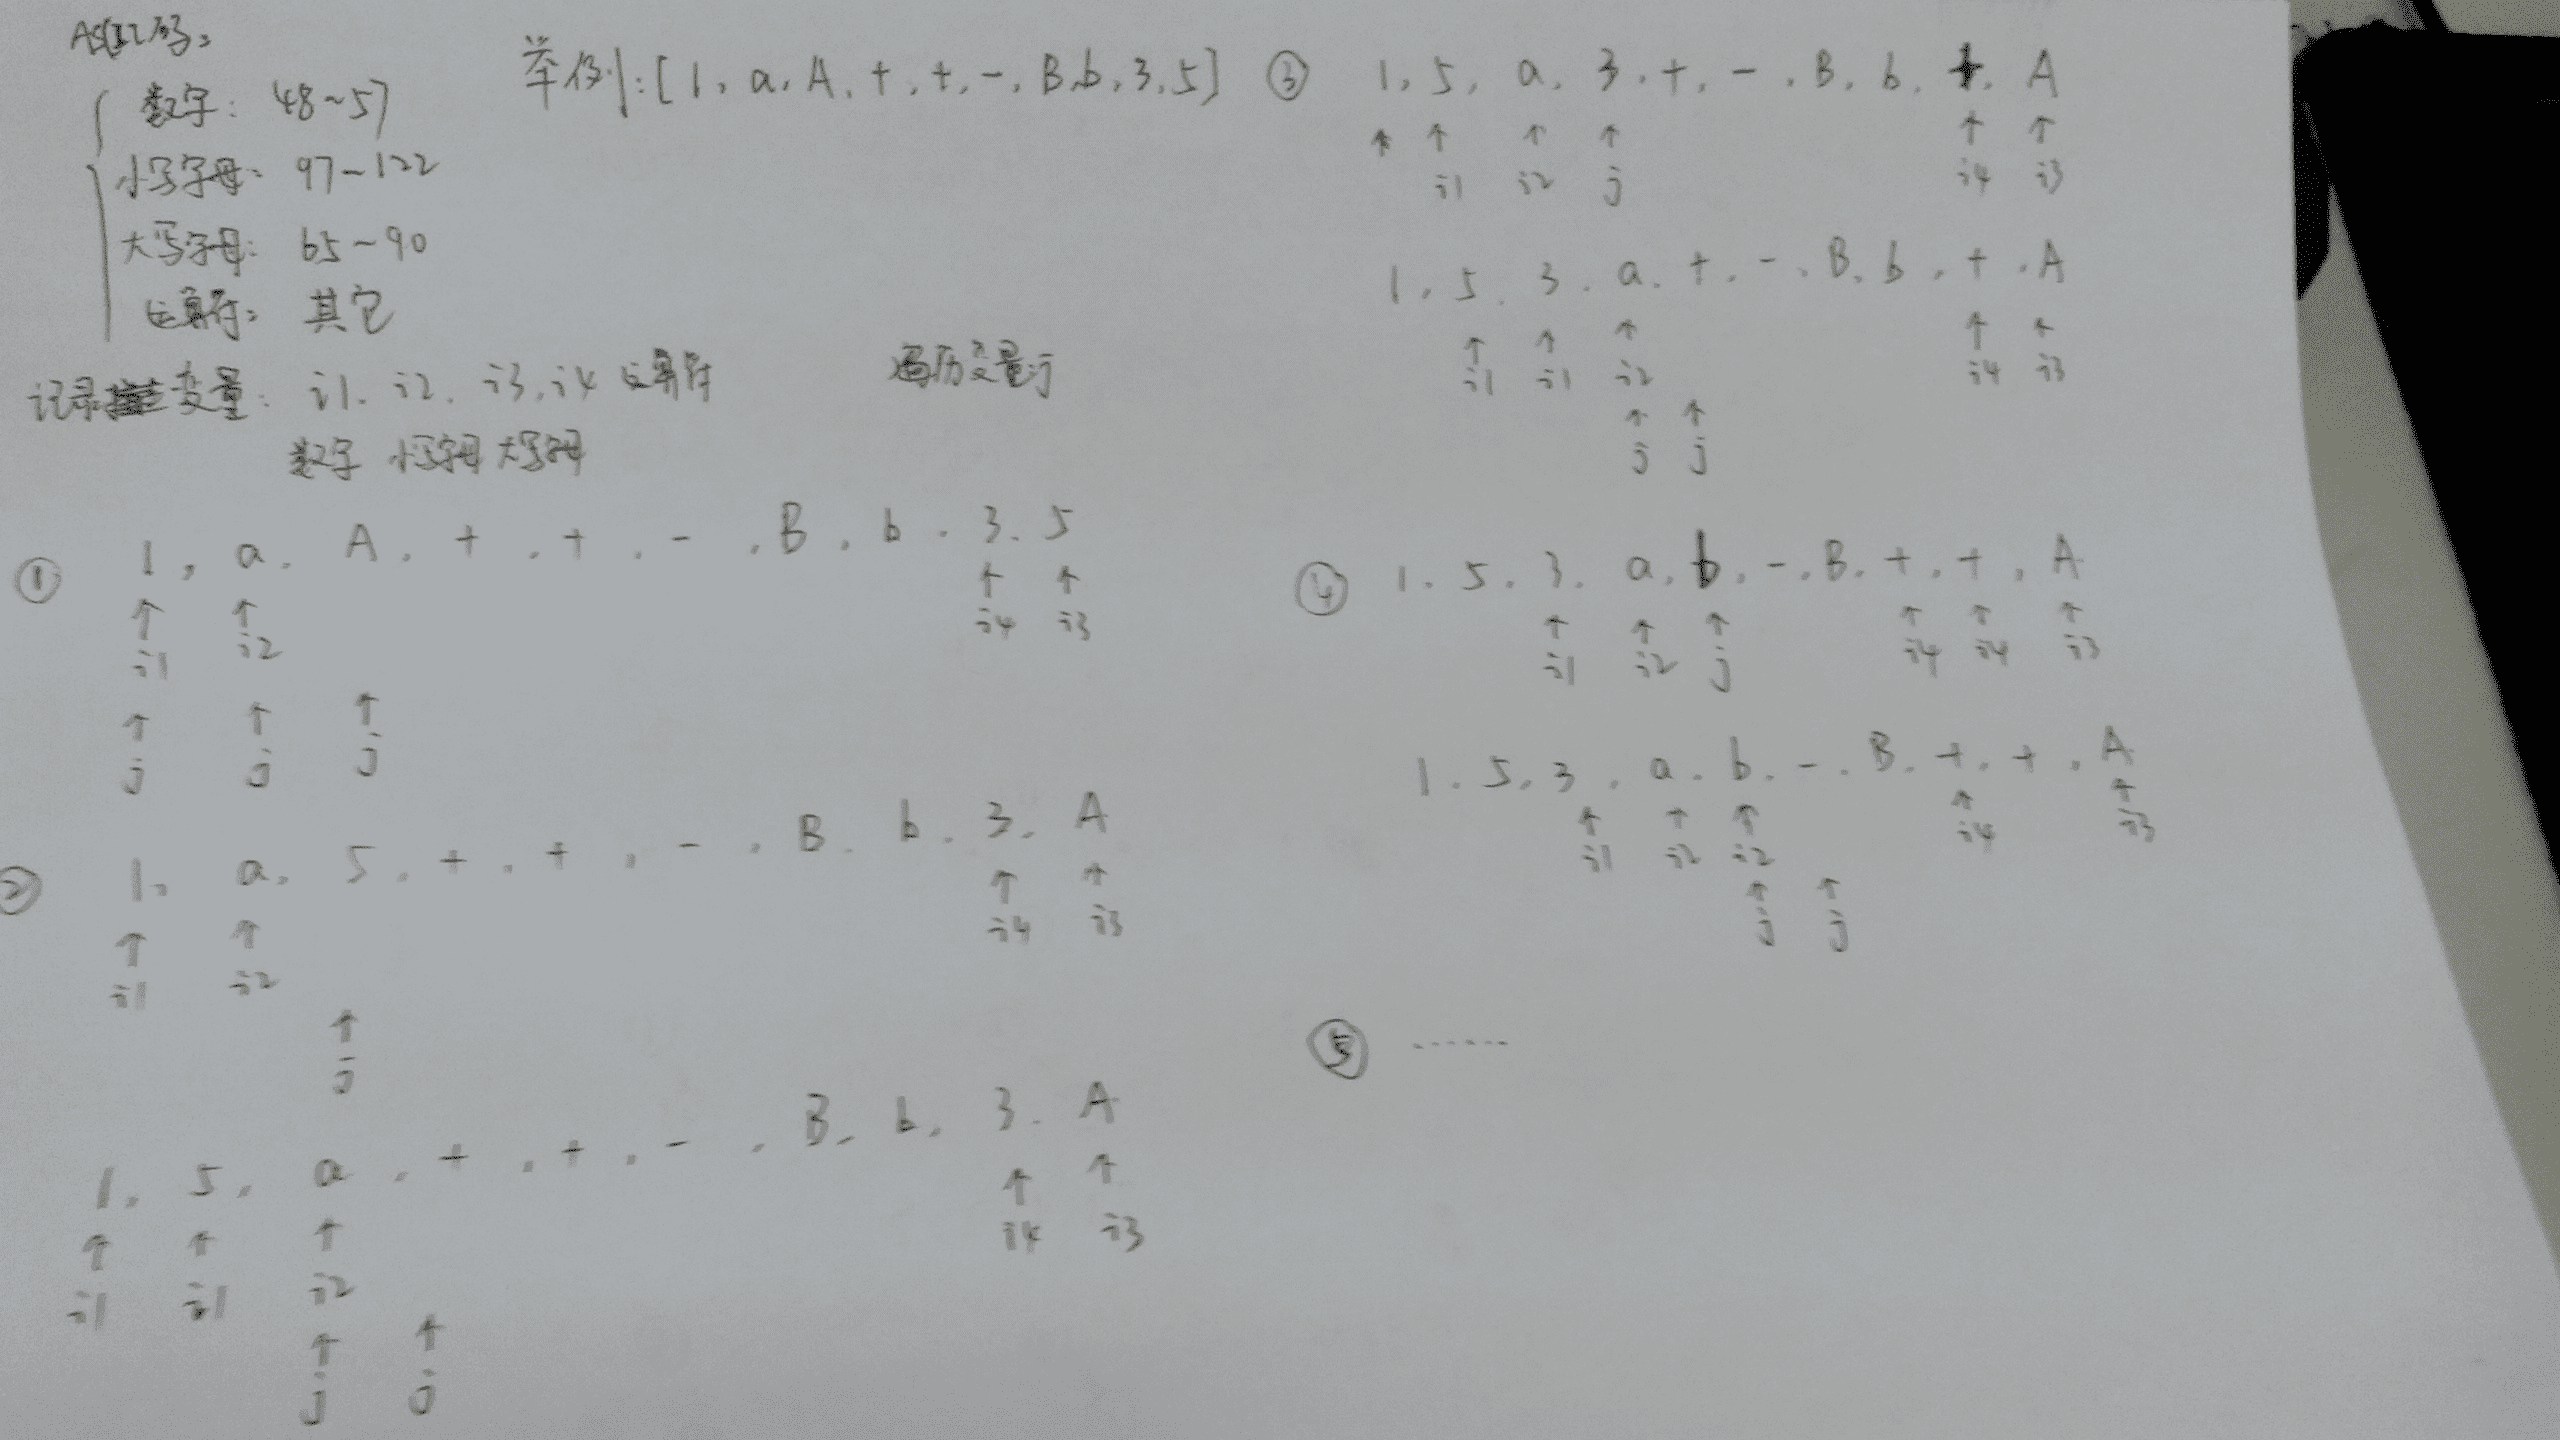 ASCII码:
数字: 48~57
小写字母: 97~122
大写字母: 65~90
运算符: 其它
举例:[1,a,A,+,+,-,B,b,3,5]
记录变量: i1. i2. i3. i4 运算符
数字 小写字母 大写字母
遍历变量j
① 1, a, A, +, +, -, B, b, 3, 5
i1 i2 i4 i3
j j j
② 1, a, 5, +, +, -, B, b, 3, A
i1 i2 i4 i3
j
1, 5, a, +, +, -, B, b, 3, A
i1 i1 i2 i4 i3
j j
③ 1, 5, a, 3, +, -, B, b, +, A
i1 i2 j i4 i3
1, 5, 3, a, +, -, B, b, +, A
i1 i1 i2 i4 i3
j j
④ 1. 5. 3. a. b. -. B. +. +. A
i1 i2 j i4 i4 i3
1. 5. 3. a. b. -. B. +. +. A
i1 i2 i2 i4 i3
j j
⑤ ......